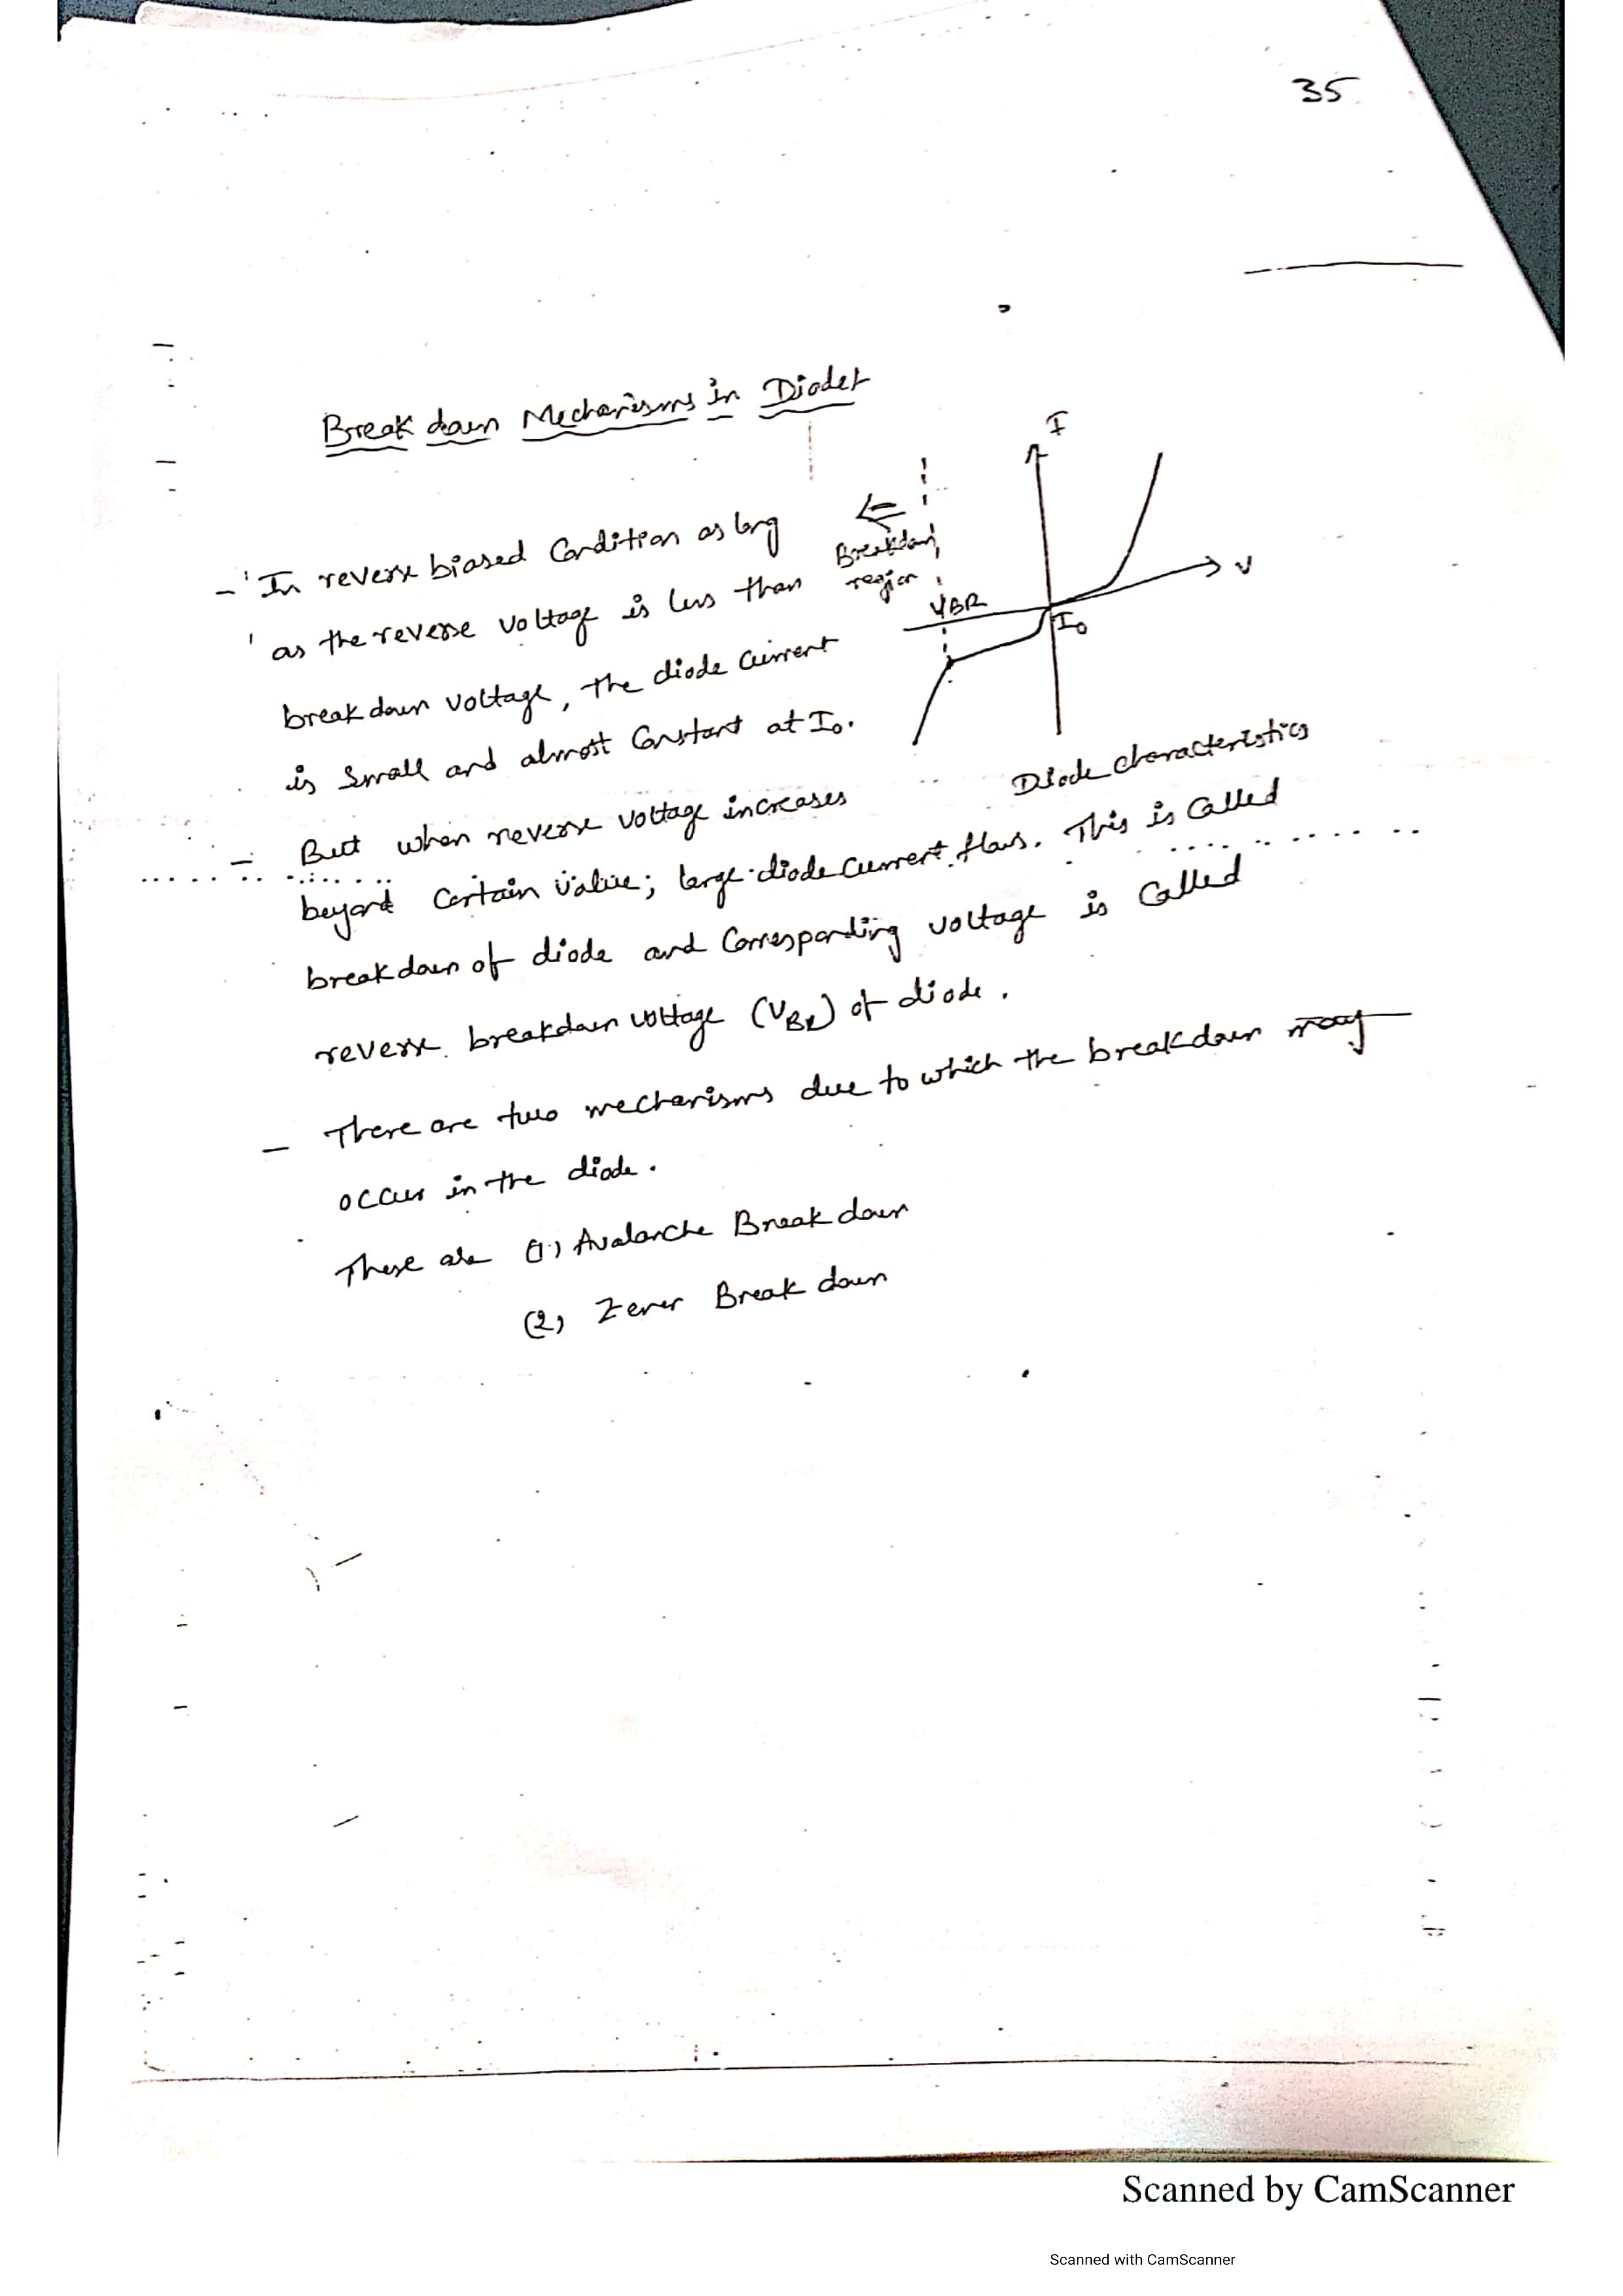 35
Break down Mechanisms in Diodes
I
- In reverse biased Condition as long
Breakdown
region
V
as the reverse voltage is less than
VBR
I₀
breakdown voltage, the diode current
is small and almost Constant at I₀.
Diode characteristics
- But when reverse voltage increases
beyond certain value; large diode current flows. This is Called
breakdown of diode and Corresponding voltage is Called
reverse breakdown voltage (VBR) of diode.
- There are two mechanisms due to which the breakdown may
occur in the diode.
These are (1) Avalanche Break down
(2) Zener Break down
Scanned by CamScanner
Scanned with CamScanner